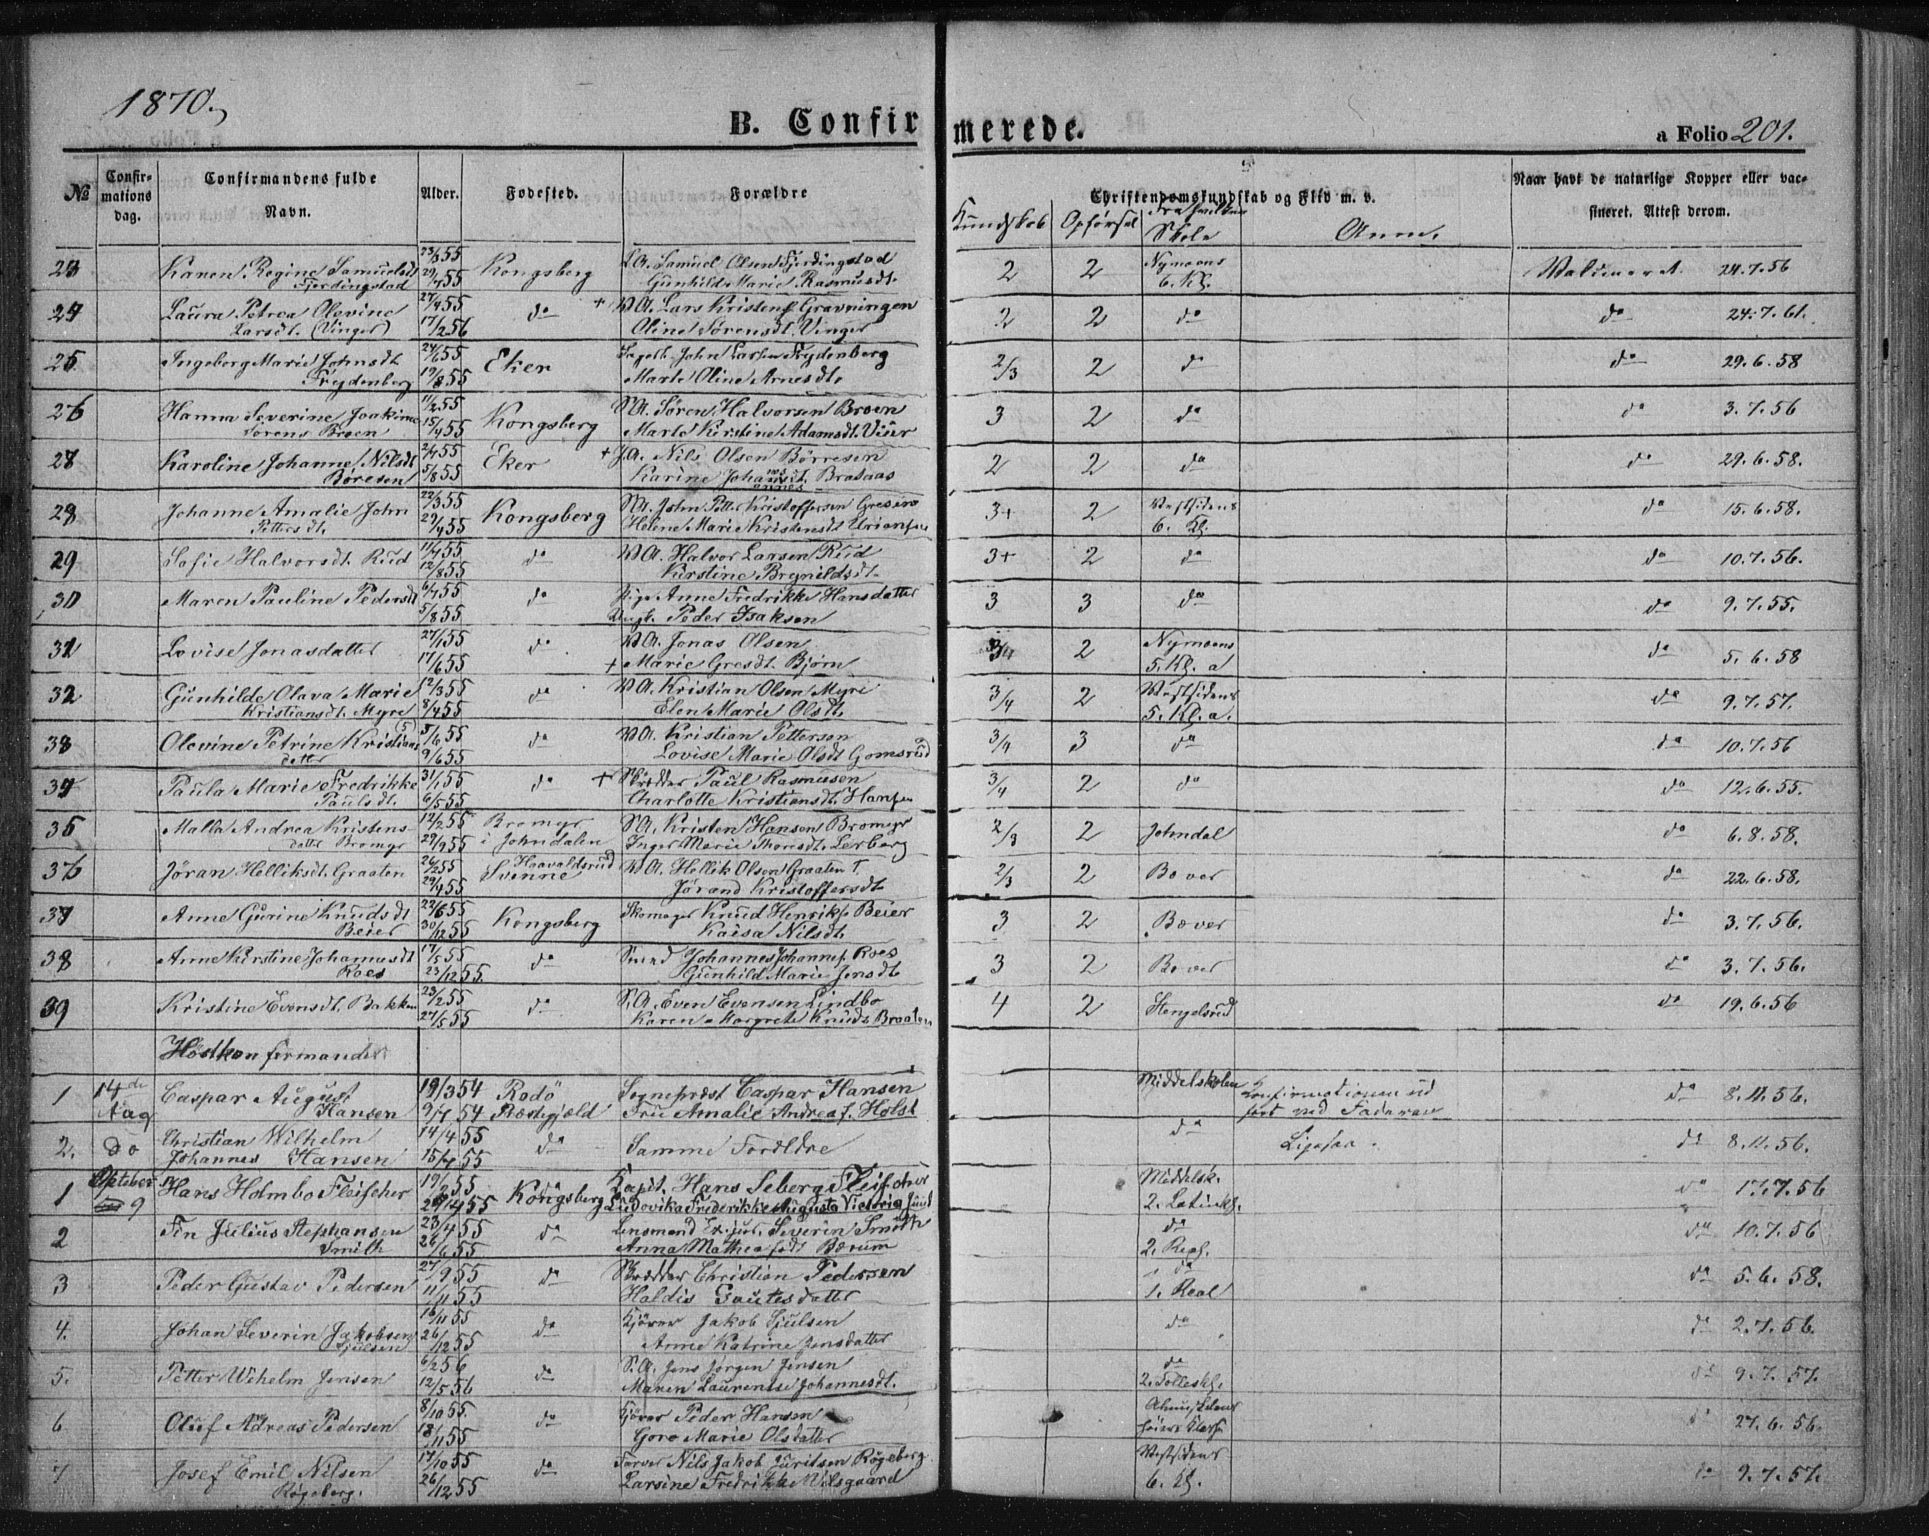 1870.
B. Confirmerede.
a Folio 201.
№ Confirmations dag. Confirmandens fulde Navn. Alder. Fødested. Forældre Christendomskundskab og Flid m. v. Naar havt de naturlige Kopper eller vaccineret. Attest derom.
Kundskab Opførsel Fra hvilken Skole Anm.
23 Karen Regine Samuelsdt 23/3 55 Kongsberg Samuel Olsen Fjerdingstad 2 2 Nymoens Valdimar A. 24.7.56
Fjerdingstad 29/4 55 Gunhild Marie Rasmusdt. 6. Kl.
24 Laura Petrea Olevine 27/9 55 do + Lars Kristens Gravningen 2 2 do do 24.7.61.
Larsdt. (Vinger) 17/2 56 Oline Sørensdt. Vinger
25 Ingeborg Marie Johnsdt 24/6 55 Eker John Larsen Frydenberg 2/3 2 do do 29.6.58
Frydenberg 19/8 55 Marte Oline Arnesdt.
26 Hanna Severine Joakime 11/2 55 Kongsberg S.A. Søren Halvorsen Broen 3 2 do do 3.7.56
Sørens Broen 15/4 55 Marte Kirstine Adamsdt. Vier
27 Karoline Johanne Nilsdt 2/4 55 Eker + Nils Olsen Børresen 2 2 do do 29.6.58.
Børesen 5/8 55 Karine Johannesdt. Brataas
28 Johanne Amalie John 22/3 55 Kongsberg John Petter Kristoffersen 3+ 2 Vestsidens do 15.6.58.
Pettersdt. 29/4 55 Helene Marie Kristensdt 6. Kl.
29 Sofie Halvorsdt. Rud 11/7 55 do Halvor Larsen Rud 3+ 2 do do 10.7.56.
12/8 55 Kirstine Brynildsdt.
30 Maren Pauline Pedersdt 6/7 55 do Pige Anne Fredrikke Hansdatter 3 3 do do 9.7.55.
5/8 55 Ungk. Peder Isaksen
31 Lovise Jonasdatter 27/1 55 do Jonas Olsen 3/4 2 Nymoens do 5.6.58
17/6 55 + Marie Gresdt. Bjørn 5. Kl. a
32 Gunhilde Olava Marie 12/3 55 do Kristian Olsen Myre 3/4 2 Vestsidens do 9.7.57.
Kristiansdt. Myre 8/4 55 Elen Marie Olsdt. 5. Kl. a.
33 Olevine Petrine Kristians 5/6 55 do Kristian Petterson 3/4 3 do do 10.7.56
datter 9/6 55 Lovise Marie Olsdt Gomsrud
34 Paula Marie Fredrikke 31/1 55 do + Skrædder Paul Rasmusen 3/4 2 do do 12.6.55.
Paulsdt. 6/5 55 Charlotte Kristiansdt. Hansen
35 Malla Andrea Kristens- 12/2 55 Bromyr S.A. Kristen Hansen Bromyr 2/3 2 Johndal do 6.8.58.
datter Bromyr 29/9 55 i Johndalen Inger Marie Thorsdt. Lerberg
36 Jøran Helliksdt. Graaten 26/2 55 Haavaldsrud Hellik Olsen Graaten 2/3 2 Bever do 22.6.58.
29/4 55 Svenne Jørand Kristoffersdt
37 Anne Gurine Knudsdt 22/6 55 Kongsberg Skomager Knud Henriks. Beier 3 2 Bæver do 3.7.56
Beier 30/12 55 Kaisa Nilsdt.
38 Anne Kirstine Johannesdt 17/5 55 do Smed Johannes Johannes. Roes 3 2 Bever do 3.7.56.
Roes 23/12 55. Gunhild Marie Jensdt
39 Kristine Evensdt. Bakken 23/2 55 do S.A. Even Evensen Lindbo 4 2 Hengelsrud do 19.6.56
27/5 55 Karen Margrete Knuds. Braaten
Høstkonfirmander
1 14de Caspar August 19/3 54 Rødø Sogneprest Caspar Hansen Middelskolen Konfirmationen ud do 8.11.56.
Aug Hansen 9/7 54 Præstegjæld Fru Amalie Andrea f. Holst ført ved Faderen
2. do Christian Wilhelm 14/4 55 do Samme Forældre do Ligesaa. do 8.11.56.
Johannes Hansen 15/7 55
1 Oktober Hans Holmbo Fleischer 19/2 55 Kongsberg Kapit. Hans Seberg Fleischer Middelsk. do 17.7.56
9 29/4 55 Ludovika Frederikke Augusta Victoria 2. Latinkl.
2 Fin Julius Stephansen 23/4 55 do Lensmand Severin Smith do do 10.7.56
Smith 26/6 55 Anna Mathea født Bærum 2. Real.
3 Peder Gustav Pedersen 27/9 55 do Skrædder Christian Pedersen do do 5.6.58.
11/11 55 Haldis Gautesdatter 1. Real
4. Johan Severin Jakobsen 16/11 55 do Kjører Jakob Sjulsen do do 2.7.56.
Sjulsen 26/12 55 Anne Katrine Jensdatter
5. Petter Wihelm Jensen 6/2 56 do S.A. Jens Jørgen Jensen do do 9.7.57.
12/5 56 Maren Laurentse Johannesdt. 2. Felleskl.
6 Oluf Adreas Pedersen 8/10 55. do Kjører Peder Hansen Almueskolens do 27.6.56.
18/11 55 Goro Marie Olsdatter høiere Klasse
7 Josef Emil Nilsen 17/10 55 do Farver Nils Jakob Juritsen Røgeberg Vestsidens do 9.7.57.
Røgeberg. 26/12 55 Larsine Fredrikke Nilsgaard 6. Kl.